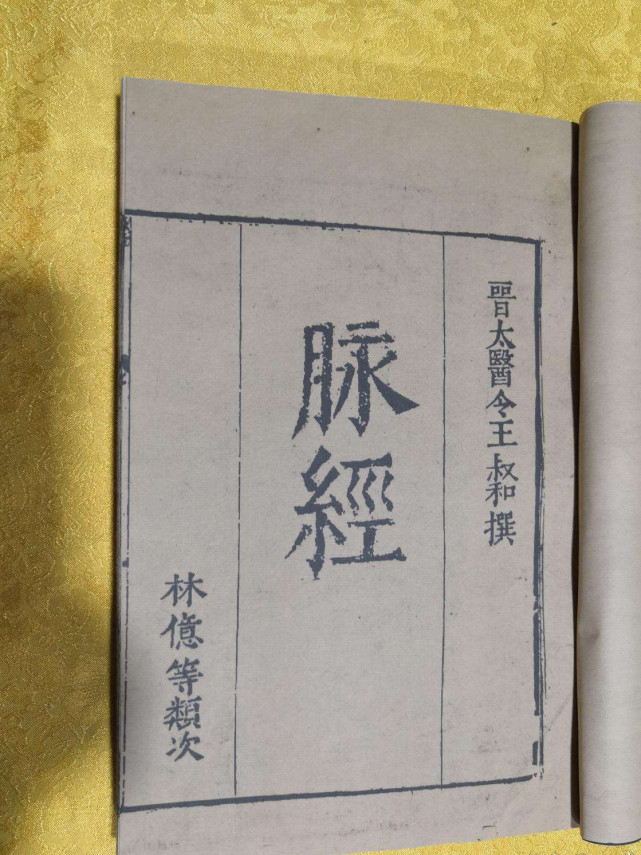 晋太醫令王叔和撰
脉經
林億等類次